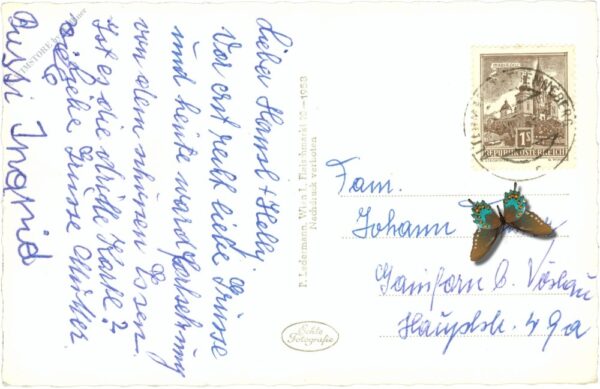 Lieber Hansl + Helly
Vor erst recht liebe Grüsse
und heute ward Fortsetzung
von dem schönen Essen.
Ist es die dritte Karte?
Viel liebe Grüsse Mutter
Bussi Ingrid
P. Ledermann, Wien I, Fleischmarkt 10 — 1958
Nachdruck verboten
Echte
Fotografie
1S
REPUBLIK ÖSTERREICH
Fam.
Johann
Gainfarn b. Vöslau
Hauptstr. 49a